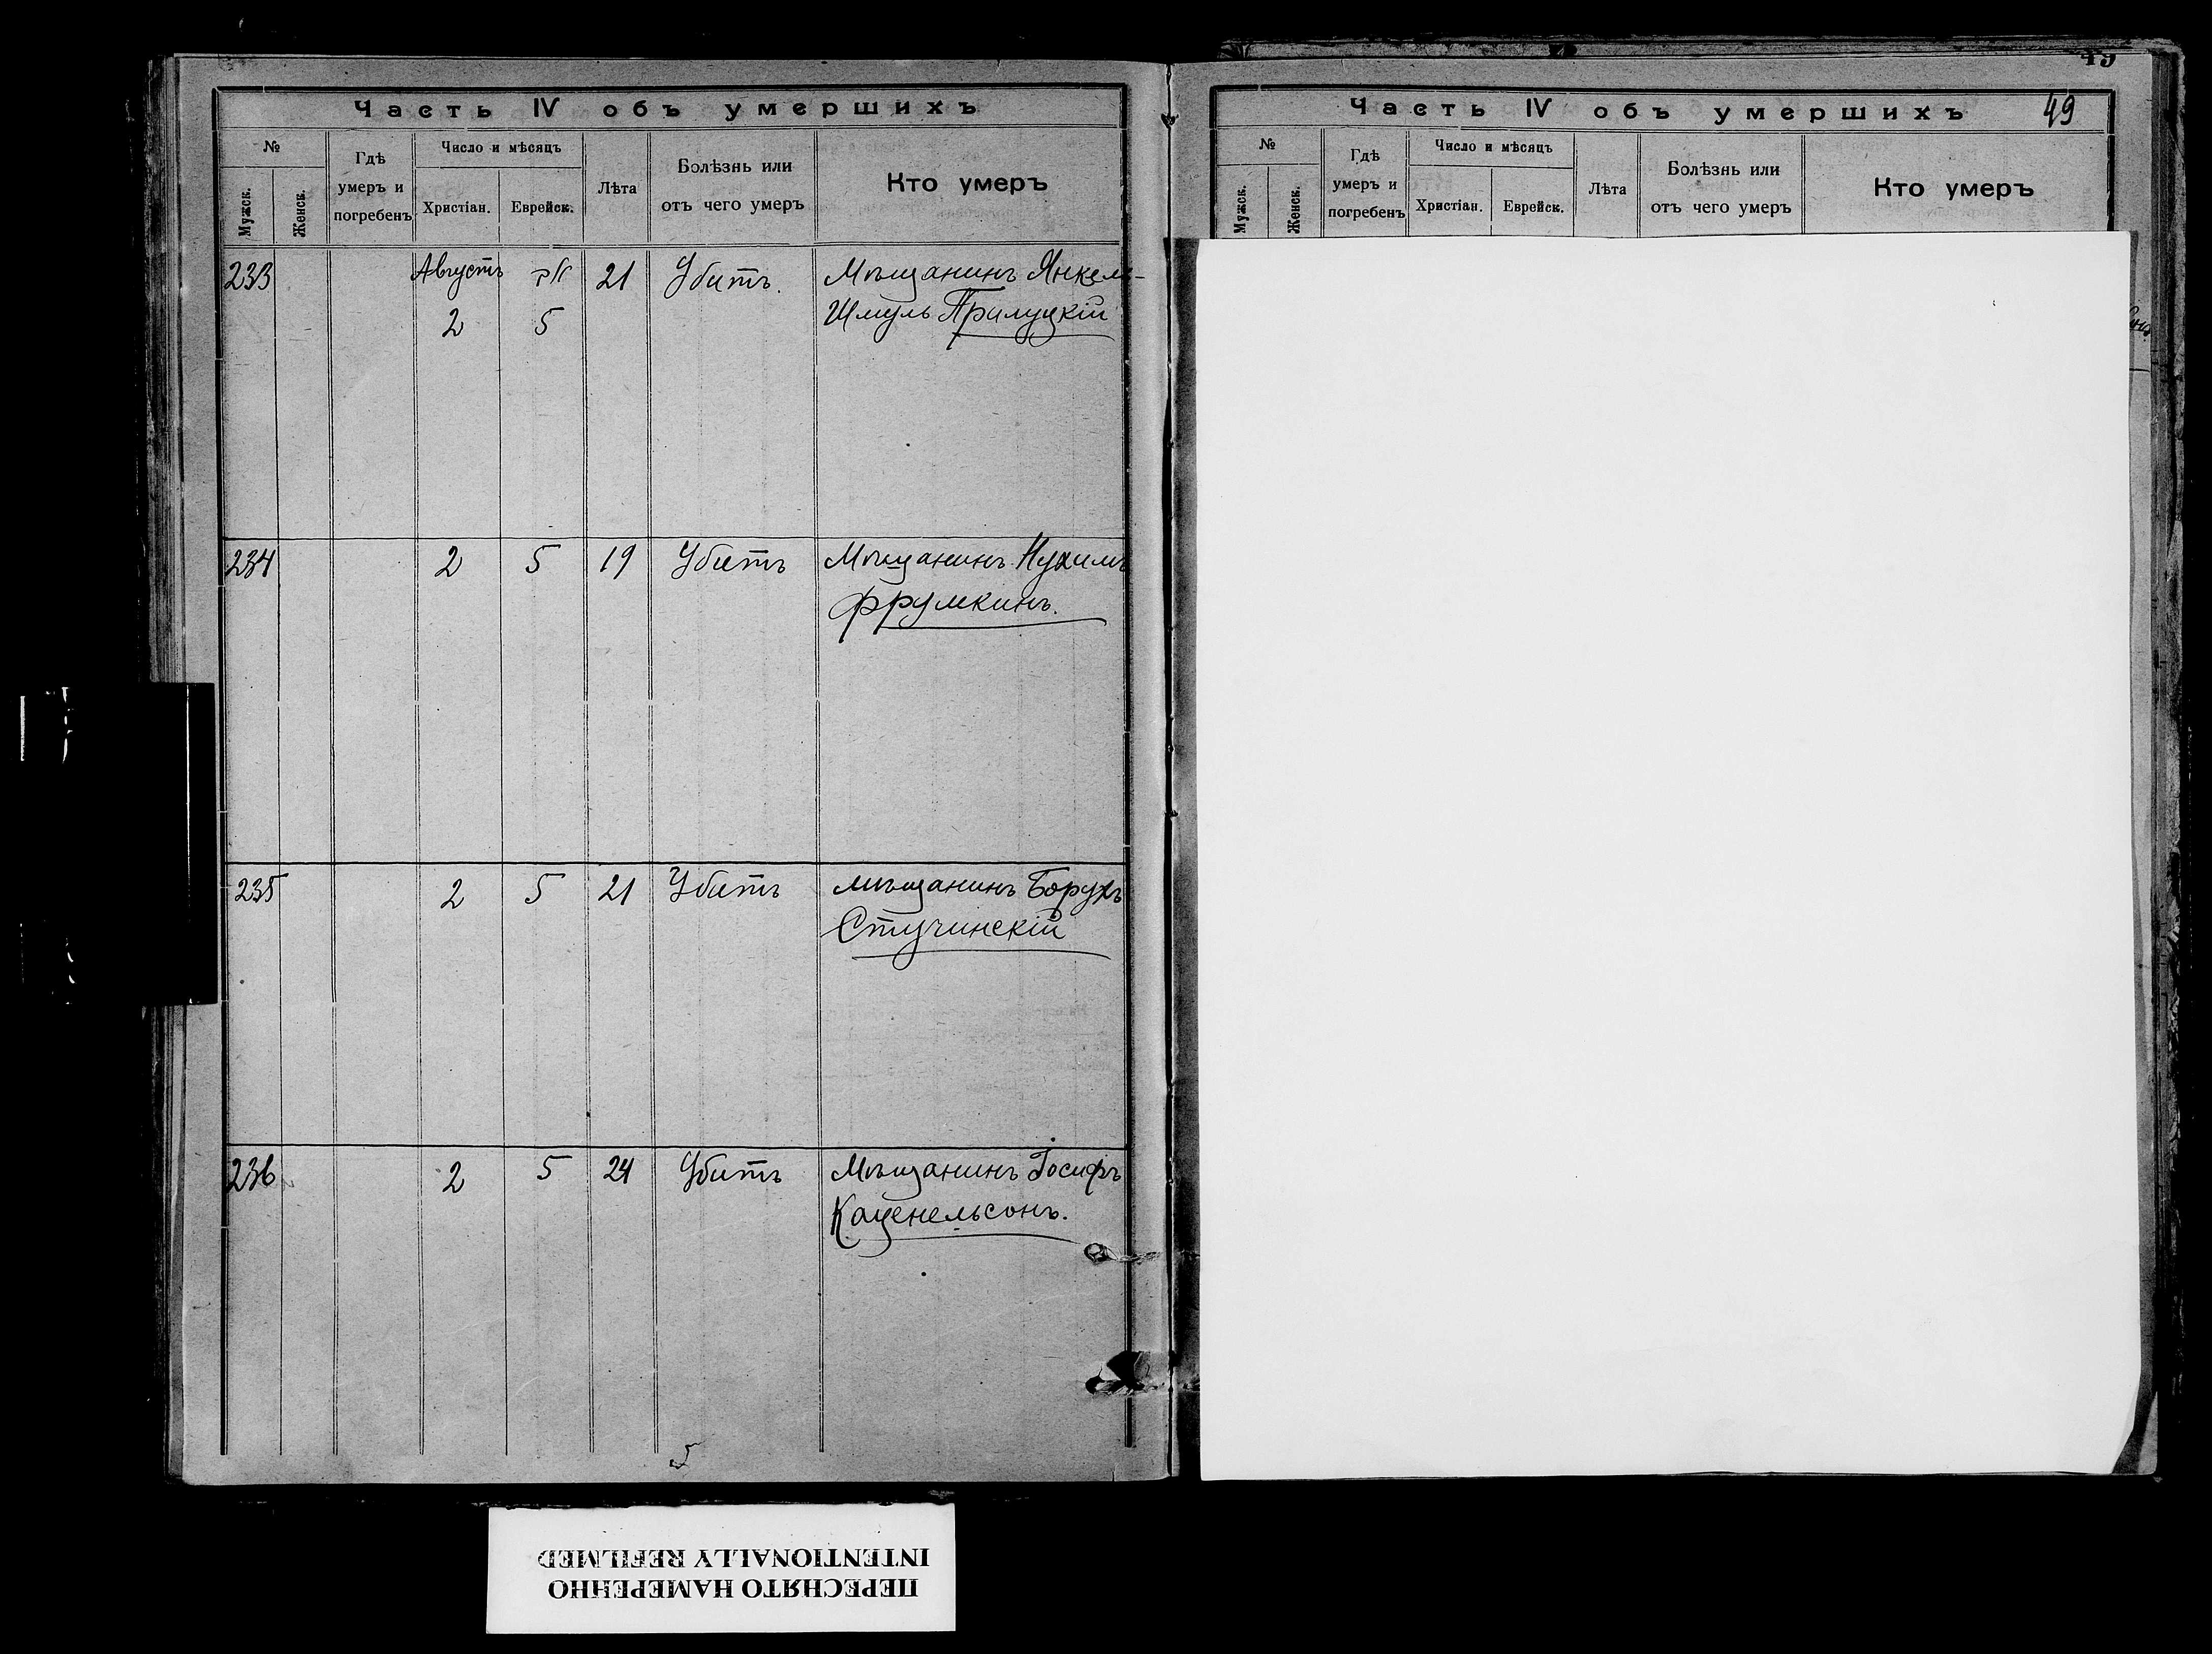 Часть IV объ умершихъ
№
Мужск.
Женск.
Гдѣ
умеръ и
погребенъ
Число и мѣсяцъ
Христіан.
Еврейск.
Лѣта
Болѣзнь или
отъ чего умеръ
Кто умеръ
233 Августъ 21 Убитъ. Мѣщанинъ Янкель-
2 5 Шмуль Прилуцкій
234 2 5 19 Убитъ Мѣщанинъ Нухимъ
Фрумкинъ.
235 2 5 21 Убитъ мѣщанинъ Борухъ
Стучинскій
236 2 5 24 Убитъ Мѣщанинъ Іосифъ
Каценельсонъ.
5
49
Часть IV объ умершихъ 49
№
Мужск.
Женск.
Гдѣ
умеръ и
погребенъ
Число и мѣсяцъ
Христіан.
Еврейск.
Лѣта
Болѣзнь или
отъ чего умеръ
Кто умеръ
ПЕРЕСНЯТО НАМЕРЕННО
INTENTIONALLY REFILMED